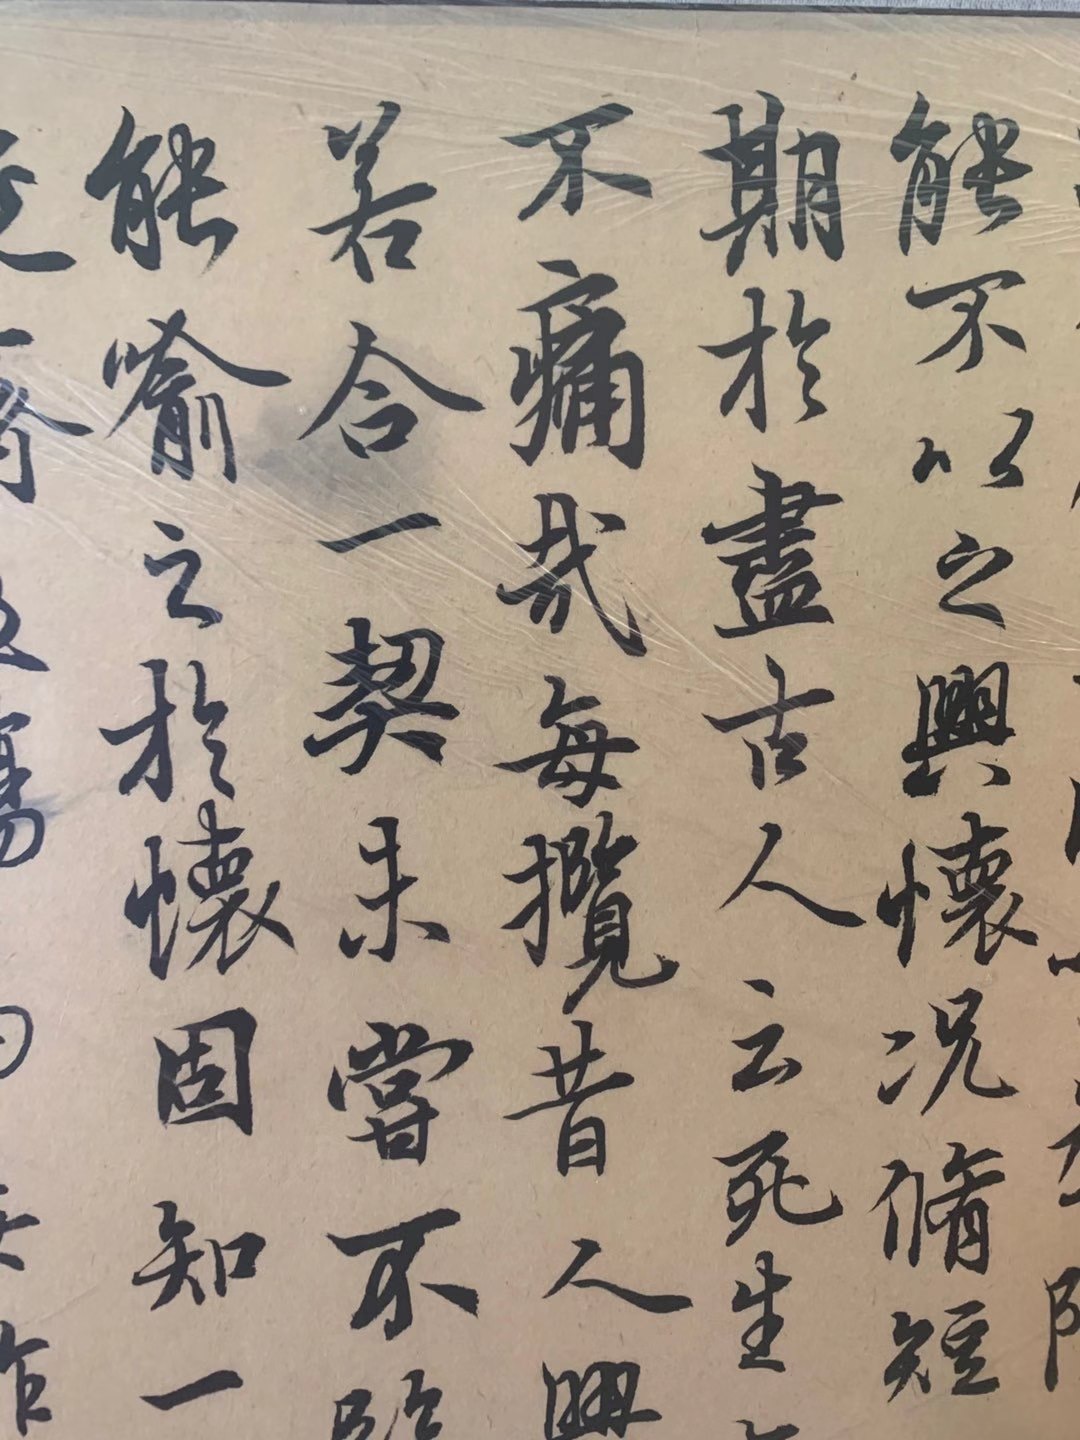 能不以之興懷况脩短
期於盡古人云死生
不痛哉每攬昔人興
若合一契未嘗不臨
能喻之於懷固知一